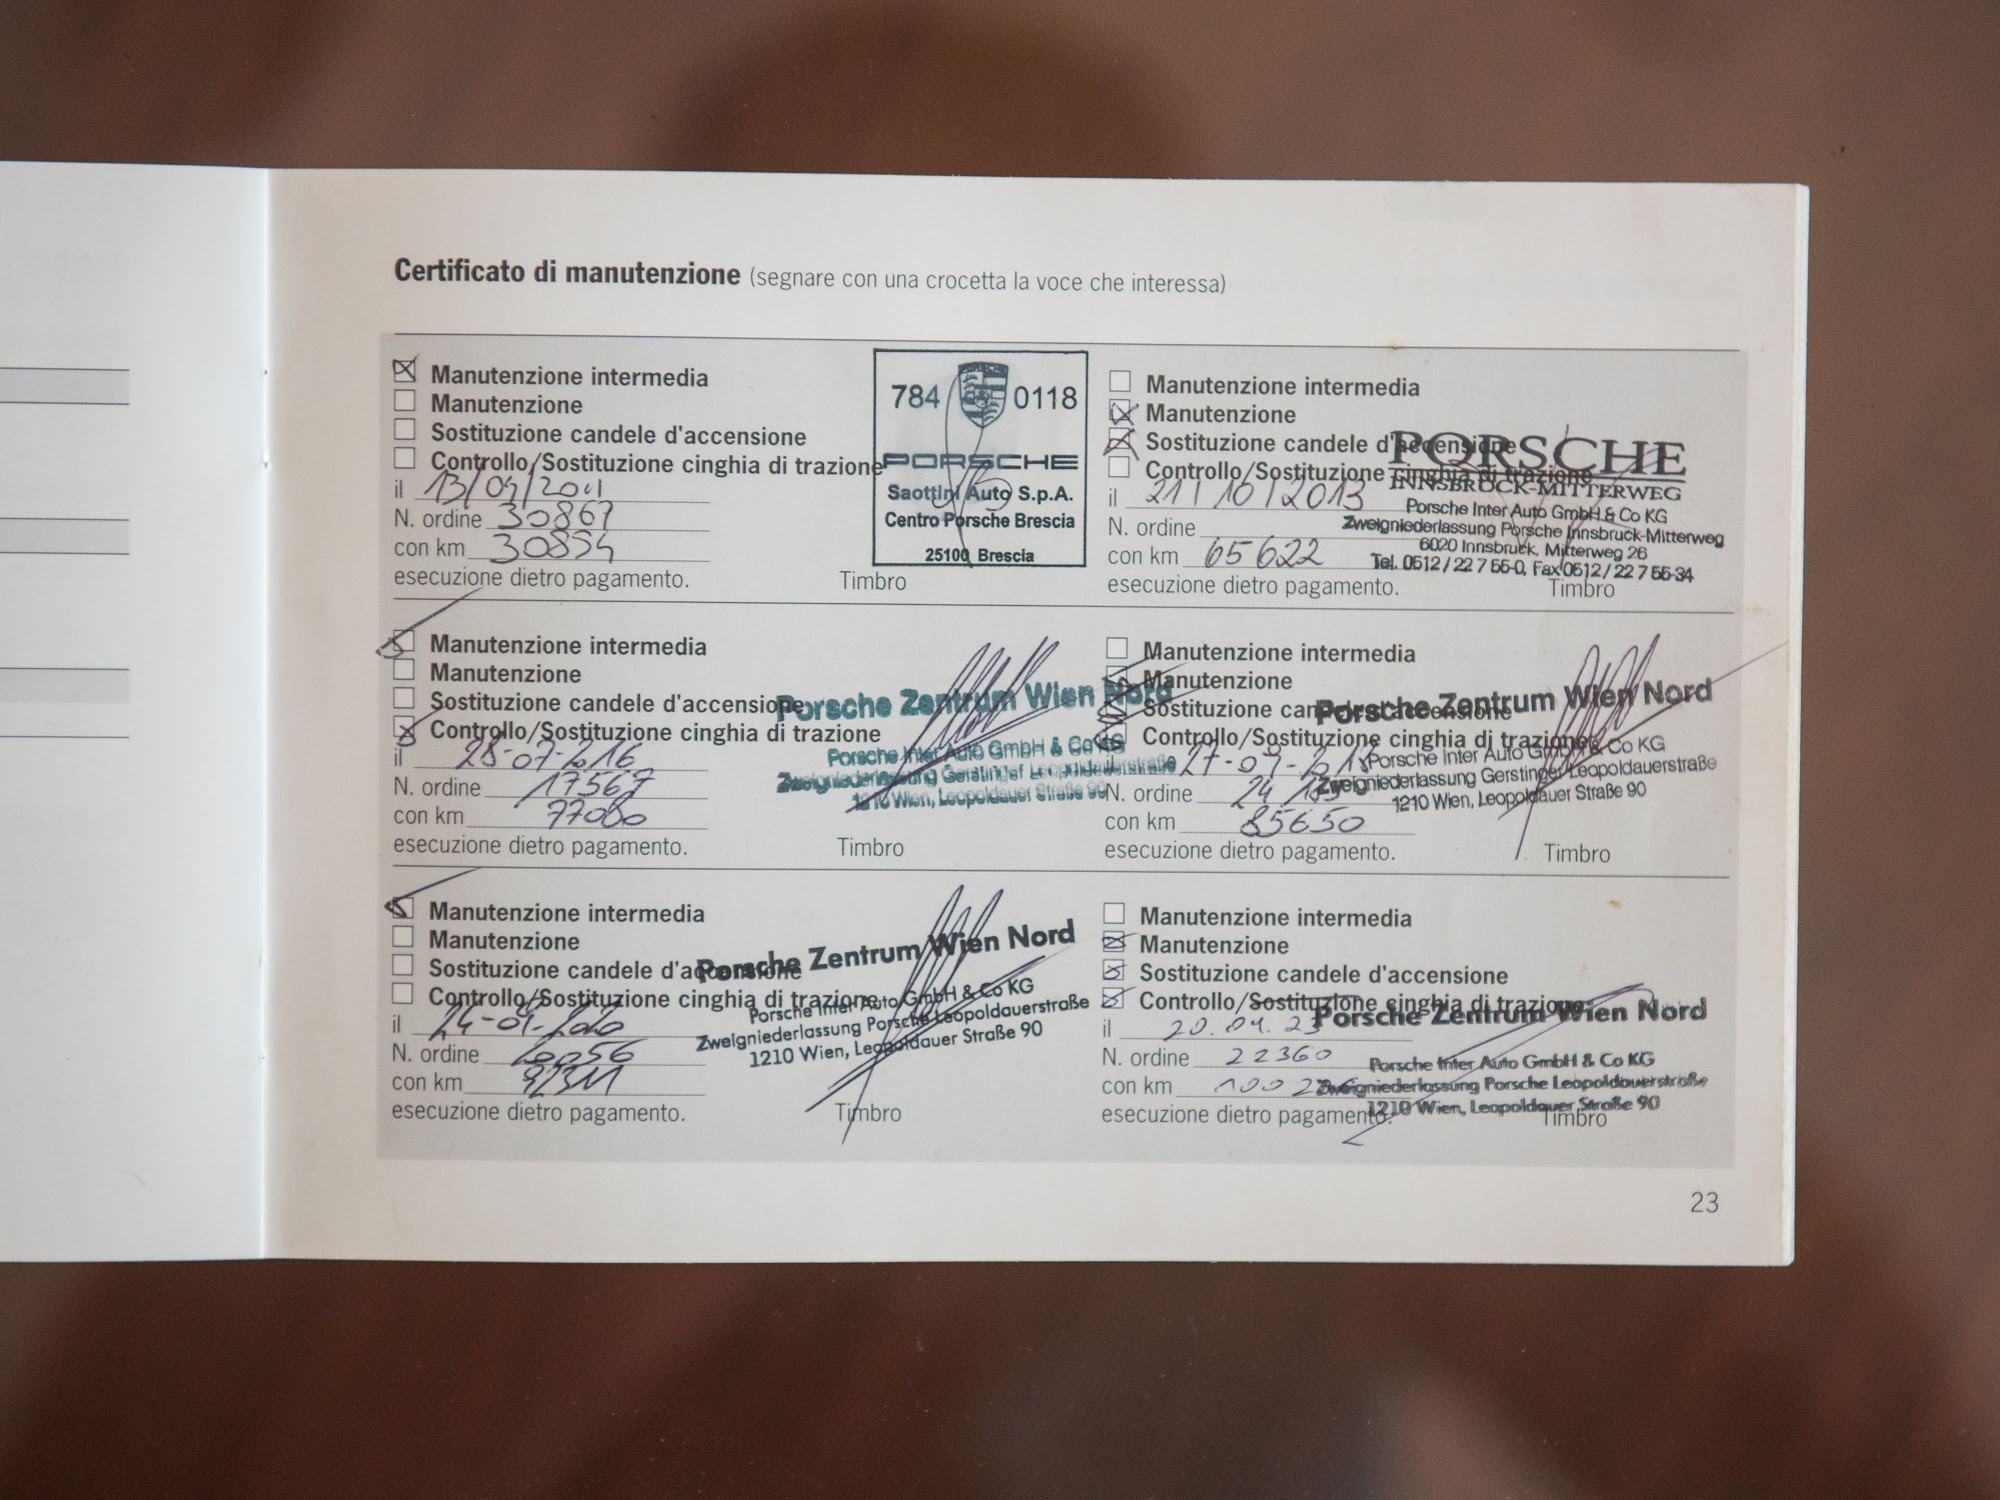 Certificato di manutenzione (segnare con una crocetta la voce che interessa)
Manutenzione intermedia
Manutenzione
Sostituzione candele d'accensione
Controllo/Sostituzione cinghia di trazione
il 13/04/2011
N. ordine 30867
con km 30894
esecuzione dietro pagamento.
Timbro
784 0118
PORSCHE
PORSCHE
Saottini Auto S.p.A.
Centro Porsche Brescia
25100 Brescia
Manutenzione intermedia
Manutenzione
Sostituzione candele d'accensione
Controllo/Sostituzione cinghia di trazione
il 21/10/2013
N. ordine
con km 65622
esecuzione dietro pagamento.
Timbro
PORSCHE
INNSBRUCK-MITTERWEG
Porsche Inter Auto GmbH & Co KG
Zweigniederlassung Porsche Innsbruck-Mitterweg
6020 Innsbruck, Mitterweg 26
Tel. 0512 / 22 7 55-0, Fax 0512 / 22 7 55-34
Manutenzione intermedia
Manutenzione
Sostituzione candele d'accensione
Controllo/Sostituzione cinghia di trazione
il 28-07-2016
N. ordine 17567
con km 77080
esecuzione dietro pagamento.
Timbro
Porsche Zentrum Wien Nord
Porsche Inter Auto GmbH & Co KG
Zweigniederlassung Gerstinger Leopoldauerstraße
1210 Wien, Leopoldauer Straße 90
Manutenzione intermedia
Manutenzione
Sostituzione candele d'accensione
Controllo/Sostituzione cinghia di trazione
il 27-09-2018
N. ordine
con km 85650
esecuzione dietro pagamento.
Timbro
Porsche Zentrum Wien Nord
Porsche Inter Auto GmbH & Co KG
Zweigniederlassung Gerstinger Leopoldauerstraße
1210 Wien, Leopoldauer Straße 90
Manutenzione intermedia
Manutenzione
Sostituzione candele d'accensione
Controllo/Sostituzione cinghia di trazione
il 24-09-2020
N. ordine 20056
con km 92311
esecuzione dietro pagamento.
Timbro
Porsche Zentrum Wien Nord
Porsche Inter Auto GmbH & Co KG
Zweigniederlassung Porsche Leopoldauerstraße
1210 Wien, Leopoldauer Straße 90
Manutenzione intermedia
Manutenzione
Sostituzione candele d'accensione
Controllo/Sostituzione cinghia di trazione
il 20.04.23
N. ordine 22360
con km
esecuzione dietro pagamento.
Timbro
Porsche Zentrum Wien Nord
Porsche Inter Auto GmbH & Co KG
Zweigniederlassung Porsche Leopoldauerstraße
1210 Wien, Leopoldauer Straße 90
23